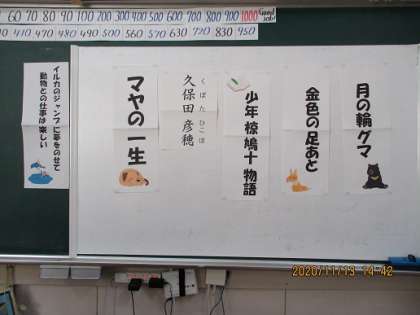 60 70 80 90 100 200 300 400 500 600 700 800 900 1000 Good Job!
410 470 480 490 500 560 630 720 830 950
月の輪グマ
金色の足あと
少年 椋鳩十 物語
くぼた ひこほ
久保田 彦穂
マヤの一生
イルカのジャンプに夢をのせて
動物との仕事は楽しい
2020/11/13 14:42